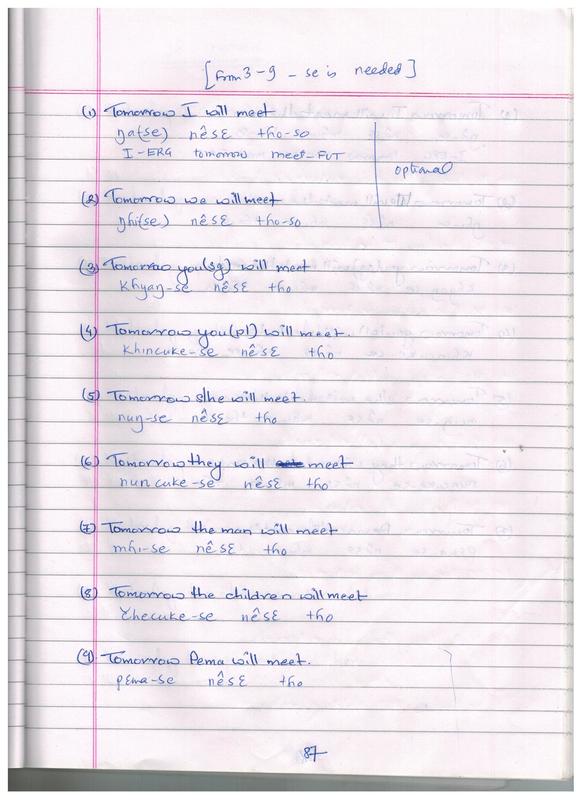 [from 3-9 - se is needed]
(1) Tomorrow I will meet
ŋa(se) nêsɛ tho-so
I-ERG tomorrow meet-FUT
optional
(2) Tomorrow we will meet
ŋhi(se) nêsɛ tho-so
(3) Tomorrow you(sg) will meet
Khyaŋ-se nêsɛ tho
(4) Tomorrow you(pl) will meet.
Khincuke-se nêsɛ tho
(5) Tomorrow s/he will meet.
nuŋ-se nêsɛ tho
(6) Tomorrow they will meet
nuncuke-se nêsɛ tho
(7) Tomorrow the man will meet
mhi-se nêsɛ tho
(8) Tomorrow the children will meet
nêsɛ tho
(9) Tomorrow Pema will meet.
pɛma-se nêsɛ tho
87